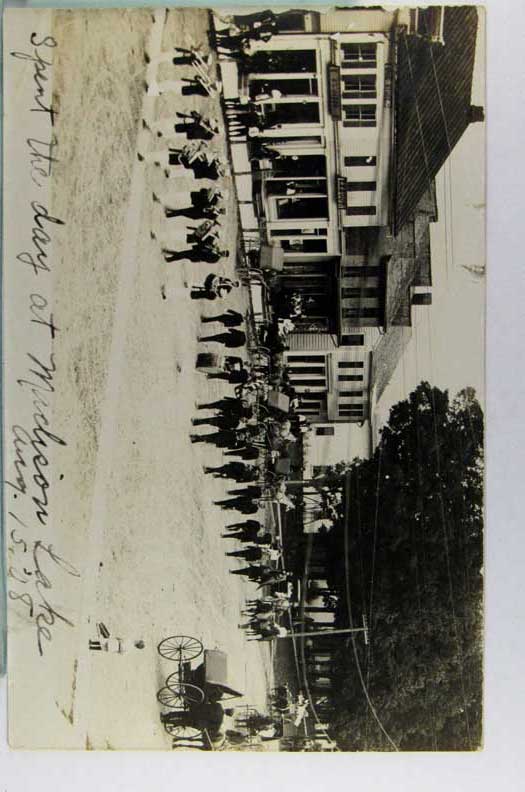 Spent the day at Madison Lake
Aug. 15, '08